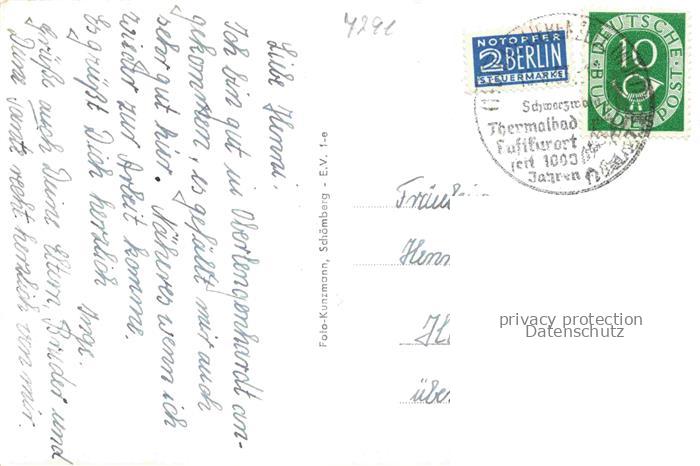 Liebe Henni.
Ich bin gut in Oberlengenhardt an-
gekommen, es gefällt mir auch
sehr gut hier. Näheres wenn ich
wieder zur Arbeit komme.
Es grüßt Dich herzlich
Inge.
Grüße auch Deine Eltern, Bruder und
Deine recht herzlich von mir.
Foto-Kunzmann, Schömberg - E.V. 1-e
4291
NOTOPFER
2 BERLIN
STEUERMARKE
DEUTSCHE
BUNDESPOST
10
Schwarzwa
Thermalbad
Luftkurort
seit 1000
Jahren
Fräulein
Henn
Hi
über
privacy protection
Datenschutz